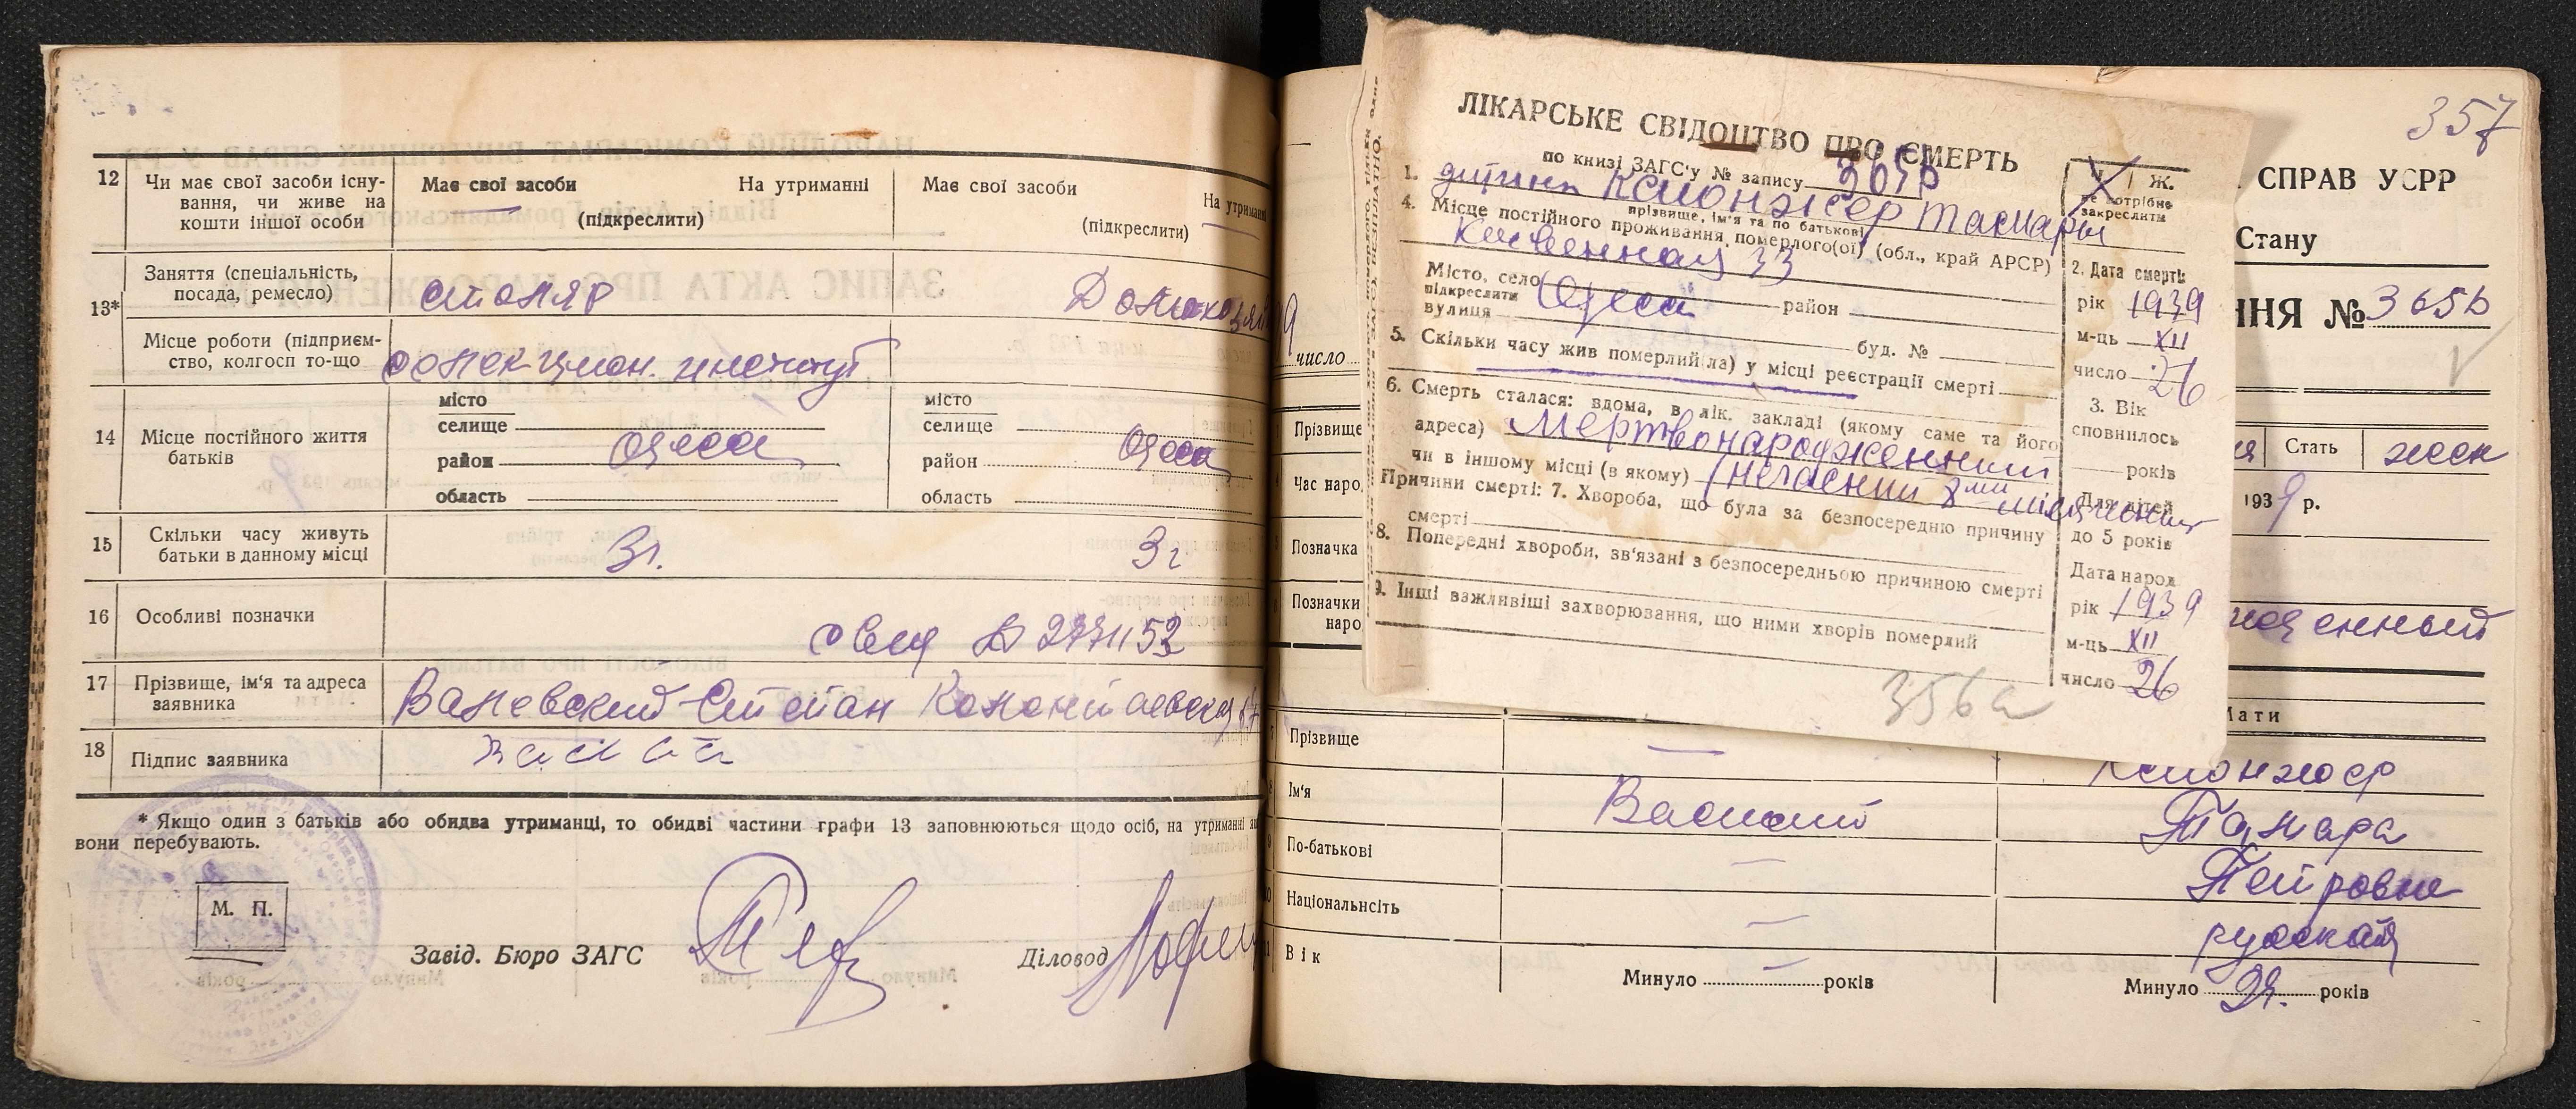 12 Чи має свої засоби існу-
вання, чи живе на
кошти іншої особи
Має свої засоби На утриманні
(підкреслити)
Має свої засоби На утриманні
(підкреслити)
13*
Заняття (спеціальність,
посада, ремесло)
столяр
Домохозяй
Місце роботи (підприєм-
ство, колгосп то-що
селекцион. институт
14 Місце постійного життя
батьків
місто
селище
район Одесса
область
місто
селище
район Одесса
область
15 Скільки часу живуть
батьки в данному місці
3г. 3г
16 Особливі позначки
2731153
17 Прізвище, ім'я та адреса
заявника
Валевский Степан
18 Підпис заявника
* Якщо один з батьків або обидва утриманці, то обидві частини графи 13 заповнюються щодо осіб, на утриманні як
вони перебувають.
М. П.
Завід. Бюро ЗАГС
Діловод
357
СПРАВ УСРР
Стану
ННЯ № 3656
число
Прізвище
Стать жен
Час наро
1939 р.
Позначка
Позначки
наро
денный
Мати
Прізвище —
Ім'я Василий Тамара
По-батькові — Петровна
Національність — русская
Вік
Минуло — років
Минуло 24. років
ЛІКАРСЬКЕ СВІДОЦТВО ПРО СМЕРТЬ
по книзі ЗАГС'у № запису
1. дитина Тамары
прізвище, ім'я та по батькові
Ж.
не потрібне
закреслити
4. Місце постійного проживання померлого(ої) (обл., край АРСР)
33
Місто, село
підкреслити
Одеса район
вулиця
буд. №
5. Скільки часу жив померлий(ла) у місці реєстрації смерті
6. Смерть сталася: вдома, в лік. закладі (якому саме та його
адреса) Мертвонародженний
чи в іншому місці (в якому)
Причини смерті: 7. Хвороба, що була за безпосередню причину
смерті
8. Попередні хвороби, зв'язані з безпосередньою причиною смерті
9. Інші важливіші захворювання, що ними хворів померлий
2. Дата смерті:
рік 1939
м-ць XII
число 26
3. Вік
сповнилось
років
Для дітей
до 5 років
Дата народ
рік 1939
м-ць XII
число 26
356а